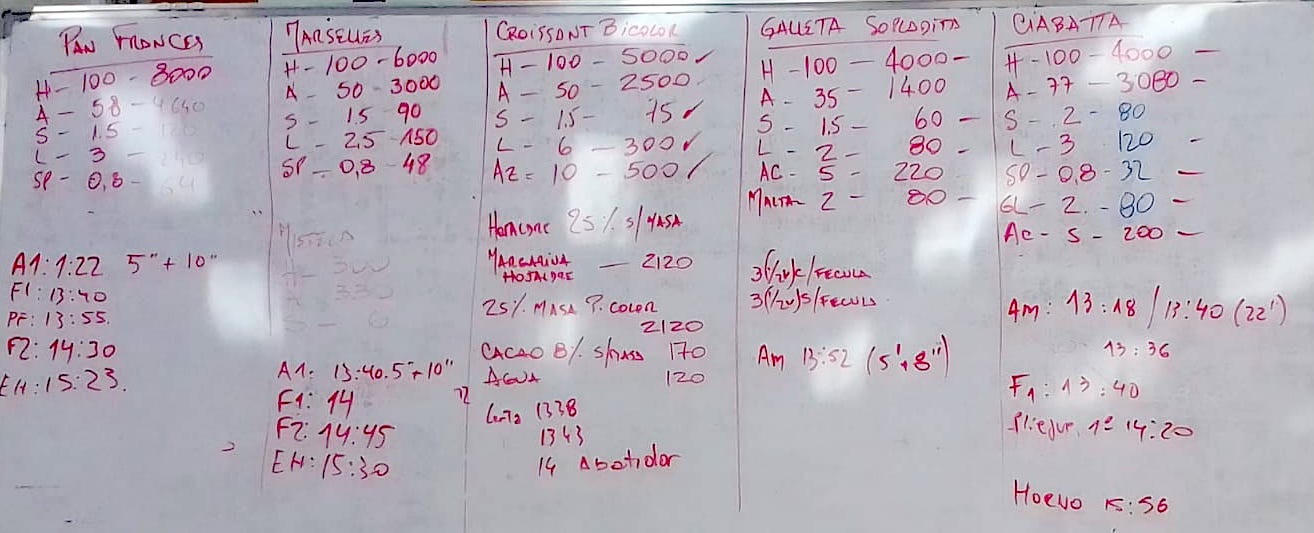 PAN FRANCES
H - 100 - 8000
A - 58 - 4640
S - 1.5 - 120
L - 3 - 240
SP - 0,8 - 64
A1: 1:22 5" + 10"
F1: 13:40
PF: 13:55.
F2: 14:30
EH: 15:23.
MARSELLES
H - 100 - 6000
A - 50 - 3000
S - 1.5 - 90
L - 2,5 - 150
SP - 0,8 - 48
300
330
6
A1: 13:40. 5" + 10"
F1: 14
F2: 14:45
EH: 15:30
CROISSANT BICOLOR
H - 100 - 5000 ✓
A - 50 - 2500
S - 1.5 - 75 ✓
L - 6 - 300 ✓
AZ = 10 - 500 ✓
HOJALDRE 25% S/MASA
MARGARINA
HOJALDRE — 2120
25% MASA P. COLOR
2120
CACAO 8% S/MASA 170
AGUA 120
1338
1343
14 Abatidor
GALLETA SOPLADITA
H - 100 - 4000 -
A - 35 - 1400
S - 1.5 - 60 -
L - 2 - 80 -
AC - 5 - 220
MALTA 2 - 80 -
3(1/20)C/FECULA
3(1/20)S/FECULA
Am 13:52 (5'+8")
CIABATTA
H - 100 - 4000 -
A - 77 - 3080 -
S - 2 - 80
L - 3 120 -
SP - 0,8 - 32 -
GL - 2. - 80 -
AC - 5 - 200 -
AM: 13:18 / 13:40 (22')
13:36
F1: 13:40
1º 14:20
Horno 15:56